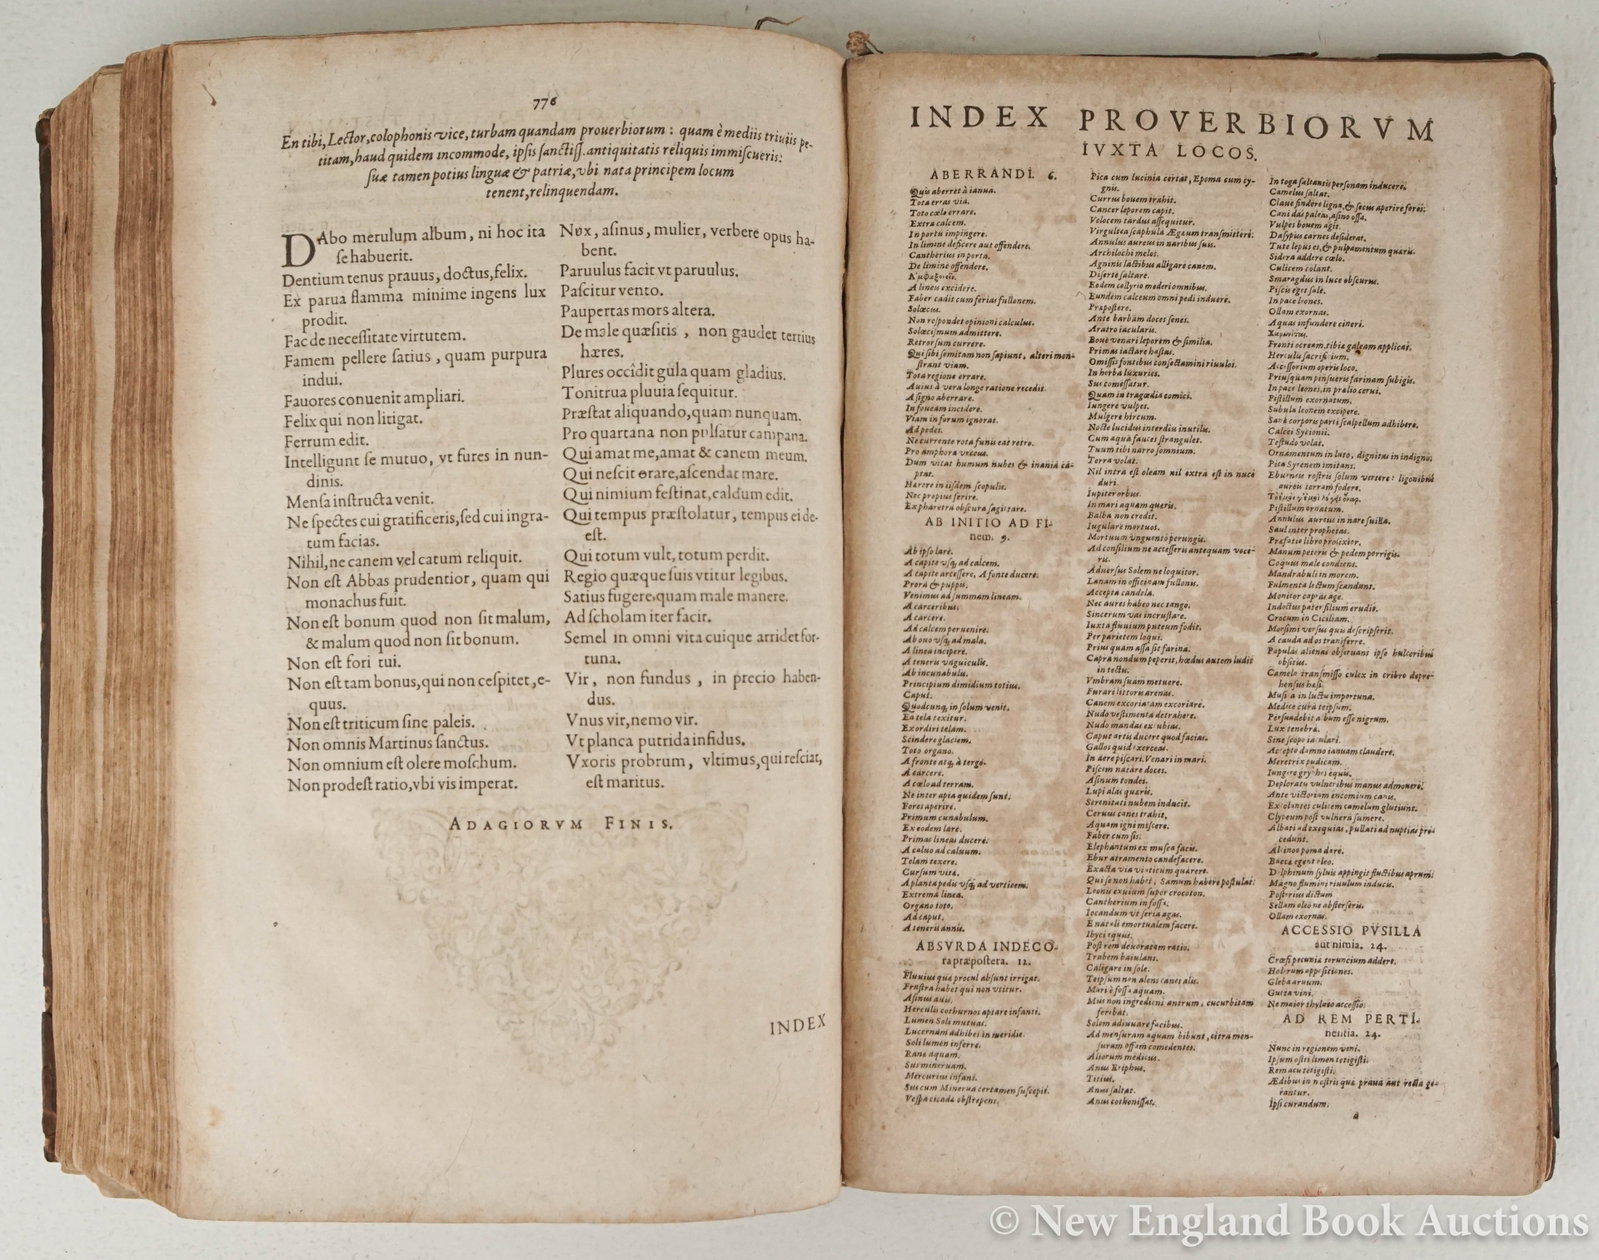 776
En tibi, Lector, colophonis vice, turbam quandam prouerbiorum : quam è mediis triuiis pe-
titam, haud quidem incommode, ipsis sanctiss. antiquitatis reliquis immiscueris:
suæ tamen potius linguæ & patriæ, vbi nata principem locum
tenent, relinquendam.
DAbo merulum album, ni hoc ita
se habuerit.
Dentium tenus prauus, doctus, felix.
Ex parua flamma minime ingens lux
prodit.
Fac de necessitate virtutem.
Famem pellere satius , quam purpura
indui.
Fauores conuenit ampliari.
Felix qui non litigat.
Ferrum edit.
Intelligunt se mutuo, vt fures in nun-
dinis.
Mensa instructa venit.
Ne spectes cui gratificeris, sed cui ingra-
tum facias.
Nihil, ne canem vel catum reliquit.
Non est Abbas prudentior, quam qui
monachus fuit.
Non est bonum quod non sit malum,
& malum quod non sit bonum.
Non est fori tui.
Non est tam bonus, qui non cespitet, e-
quus.
Non est triticum sine paleis.
Non omnis Martinus sanctus.
Non omnium est olere moschum.
Non prodest ratio, vbi vis imperat.
Nox, asinus, mulier, verbere opus ha-
bent.
Paruulus facit vt paruulus.
Pascitur vento.
Paupertas mors altera.
De male quæsitis , non gaudet tertius
hæres.
Plures occidit gula quam gladius.
Tonitrua pluuia sequitur.
Præstat aliquando, quam nunquam.
Pro quartana non pulsatur campana.
Qui amat me, amat & canem meum.
Qui nescit orare, ascendat mare.
Qui nimium festinat, caldum edit.
Qui tempus præstolatur, tempus ei de-
est.
Qui totum vult, totum perdit.
Regio quæque suis vtitur legibus.
Satius fugere, quam male manere.
Ad scholam iter facit.
Semel in omni vita cuique arridet for-
tuna.
Vir, non fundus , in precio haben-
dus.
Vnus vir, nemo vir.
Vt planca putrida infidus.
Vxoris probrum, vltimus, qui resciat,
est maritus.
ADAGIORVM FINIS.
INDEX
INDEX PROVERBIORVM
IVXTA LOCOS.
ABERRANDI. 6.
Quis aberret à ianua.
Tota erras via.
Toto cœlo errare.
Extra calcem.
In portu impingere.
In limine deficere aut offendere.
Cantherius in porta.
De limine offendere.
A lineis excidere.
Faber cadit cum ferias fullonem.
Solœcus.
Non respondet opinioni calculus.
Solœcismum admittere.
Retrorsum currere.
Qui sibi semitam non sapiunt, alteri mon-
strant viam.
Tota regione errare.
Auius à vera longe ratione recedit.
A signo aberrare.
In foueam incidere.
Viam in forum ignorat.
Ad pedes.
Ne currente rota funis eat retro.
Pro amphora vrceus.
Dum vitat humum nubes & inania ca-
ptat.
Hærere in iisdem scopulis.
Nec propius ferire.
Ex pharetra obscura sagittare.
AB INITIO AD FI-
nem. 9.
Ab ipso lare.
A capite vsq, ad calcem.
A capite arcessere, A fonte ducere.
Prora & puppis.
Venimus ad summam lineam.
A carceribus.
A carcere.
Ad calcem peruenire.
Ab ouo vsq, ad mala.
A linea incipere.
A teneris vnguiculis.
Ab incunabulis.
Principium dimidium totius.
Caput.
Quodcunq, in solum venit.
Ea tela texitur.
Exordiri telam.
Scindere glaciem.
Toto organo.
A fronte atq, à tergo.
A carcere.
A cœlo ad terram.
Ne inter apia quidem sunt.
Fores aperire.
Primum cunabulum.
Ex eodem lare.
Primas lineas ducere.
A caluo ad caluum.
Telam texere.
Cursum vita.
A planta pedis vsq, ad verticem.
Extrema linea.
Organo toto.
Ad caput.
A teneris annis.
ABSVRDA INDECO-
ra præpostera. 12.
Fluuius quæ procul absunt irrigat.
Frustra habet qui non vtitur.
Asinus auis.
Herculis cothurnos aptare infanti.
Lumen Soli mutuas.
Lucernam adhibes in meridie.
Soli lumen inferre.
Rana aquam.
Sus mineruam.
Mercurius infans.
Sus cum Minerua certamen suscepit.
Vespa cicada obstrepens.
Pica cum luscinia certat, Epoma cum cy-
gnis.
Currus bouem trahit.
Cancer leporem capit.
Velocem tardus assequitur.
Virgultea scaphula Ægæum transmittere.
Annulus aureus in naribus suis.
Archilochi melos.
Agninis lactibus alligare canem.
Diserte saltare.
Eodem collyrio mederi omnibus.
Eundem calceum omni pedi induere.
Præpostere.
Ante barbam doces senes.
Aratro iaculari.
Boue venari leporem & similia.
Primas iactare hastas.
Omissis fontibus consectamini riuulos.
In herba luxuries.
Sus comessatur.
Quam in tragœdia comici.
Iungere vulpes.
Mulgere hircum.
Nocte lucidus interdiu inutilis.
Cum aqua fauces strangulet.
Tuum tibi narro somnium.
Terra volat.
Nil intra est oleam nil extra est in nuce
duri.
Iupiter orbus.
In mari aquam queris.
Balba non credit.
Iugulare mortuos.
Mortuum vnguento perungis.
Ad consilium ne accesseris antequam voce-
ris.
Aduersus Solem ne loquitor.
Lanam in officinam fullonis.
Accepta candela.
Nec aures habeo nec tango.
Sincerum vas incrustare.
Iuxta fluuium puteum fodit.
Per parietem loqui.
Prius quam assa sit farina.
Capra nondum peperit, hœdus autem ludit
in tectis.
Vmbram suam metuere.
Furari litoris arenas.
Canem excoriatam excoriare.
Nudo vestimenta detrahere.
Nudo mandas excubias.
Caput artis ducere quod facias.
Gallos quid execas.
In aere piscari. Venari in mari.
Piscem natare doces.
Asinum tondes.
Lupi alas quæris.
Serenitati nubem inducit.
Ceruus canes trahit.
Aquam igni miscere.
Faber cum sis.
Elephantum ex musca facis.
Ebur atramento candefacere.
Exacta via viaticum quærere.
Qui se non habet, Samum habere postulat.
Leonis exuium super crocoton.
Cantherium in fossa.
Iocandum vt seria agas.
E natali emortualem facere.
Ibyci equus.
Post rem deuoratam ratio.
Trabem baiulans.
Caligare in sole.
Teipsum non alens canes alis.
Mari è fossa aquam.
Mus non ingrediens antrum, cucurbitam
ferebat.
Solem adiuuare facibus.
Ad mensuram aquam bibunt, citra men-
suram offam comedentes.
Aliorum medicus.
Anus Eriphus.
Titiuis.
Anus saltat.
Anus cothonissat.
In toga saltantis personam inducere.
Camelus saltat.
Claue findere ligna, & securi aperire fores.
Cani das paleas, asino ossa.
Vulpes bouem agit.
Dasypus carnes desiderat.
Tute lepus es, & pulpamentum quæris.
Sidera addere cœlo.
Culicem colant.
Smaragdus in luce obscurus.
Piscis eget sale.
In pace leones.
Ollam exornas.
Aquas infundere cineri.
Fronti ocream, tibiæ galeam applicas.
Herculis sacrificium.
Accessorium operis loco.
Priusquam pinsueris farinam subigis.
In pace leones, in prælio cerui.
Pistillum exornatum.
Subula leonem excipere.
Sanæ corporis parti scalpellum adhibere.
Calcei Sycionii.
Testudo volat.
Ornamentum in luto, dignitas in indignis.
Pica Syrenem imitans.
Eburneis rostris solum vertere: ligonibus
aureis terram fodere.
Pistillum ornatum.
Annulus aureus in nare suilla.
Saul inter prophetas.
Præfatio libro prolixior.
Manum peteris & pedem porrigis.
Coquus male condiens.
Mandrabuli in morem.
Pulmenta lectum scandunt.
Monitor capræ age.
Indoctus pater filium erudit.
Crocum in Ciliciam.
Morsimi versus quis descripserit.
A cauda ad os transferre.
Populas alienas obseruans ipse hulceribus
obsitus.
Camelo transmisso culex in cribro depre-
hensus hæsit.
Musica in luctu importuna.
Medice cura teipsum.
Persuadebit album esse nigrum.
Lux tenebræ.
Sine scopo iaculari.
Accepto damno ianuam claudere.
Meretrix pudicam.
Iungere gryphes equis.
Deploratis vulneribus manus admouere.
Ante victoriam encomium canis.
Excolantes culicem camelum glutiunt.
Clypeum post vulnera sumere.
Albati ad exequias, pullati ad nuptias pro-
cedunt.
Alcinoo poma dare.
Bacca egent oleo.
Delphinum syluis appingit fluctibus aprum.
Magno flumini riuulum inducis.
Posterius dictum.
Sellam oleo ne absterseris.
Ollam exornas.
ACCESSIO PVSILLA
aut nimia. 24.
Crœsi pecuniæ teruncium addere.
Holerum appositiones.
Gleba aruum.
Gutta vini.
Ne maior thylaco accessio.
AD REM PERTI-
nentia. 24.
Nunc in regionem veni.
Ipsum ostii limen tetigisti.
Rem acu tetigisti.
Ædibus in nostris quæ praua aut recta ge-
rantur.
Ipsi curandum.
a
© New England Book Auctions